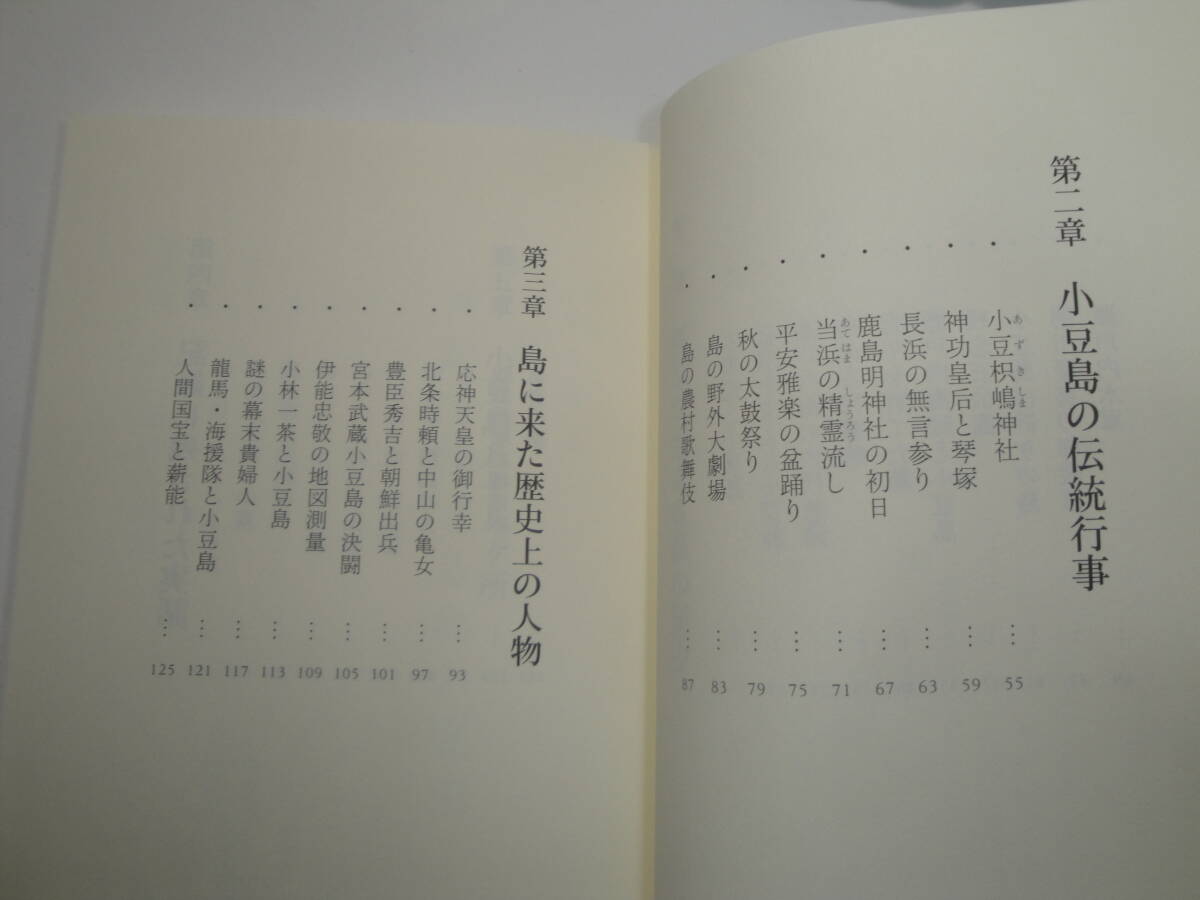 第二章 小豆島の伝統行事
・小豆枳嶋神社 … 55
・神功皇后と琴塚 … 59
・長浜の無言参り … 63
・鹿島明神社の初日 … 67
・当浜の精霊流し … 71
・平安雅楽の盆踊り … 75
・秋の太鼓祭り … 79
・島の野外大劇場 … 83
・島の農村歌舞伎 … 87
第三章 島に来た歴史上の人物
・応神天皇の御行幸 … 93
・北条時頼と中山の亀女 … 97
・豊臣秀吉と朝鮮出兵 … 101
・宮本武蔵小豆島の決闘 … 105
・伊能忠敬の地図測量 … 109
・小林一茶と小豆島 … 113
・謎の幕末貴婦人 … 117
・龍馬・海援隊と小豆島 … 121
・人間国宝と薪能 … 125